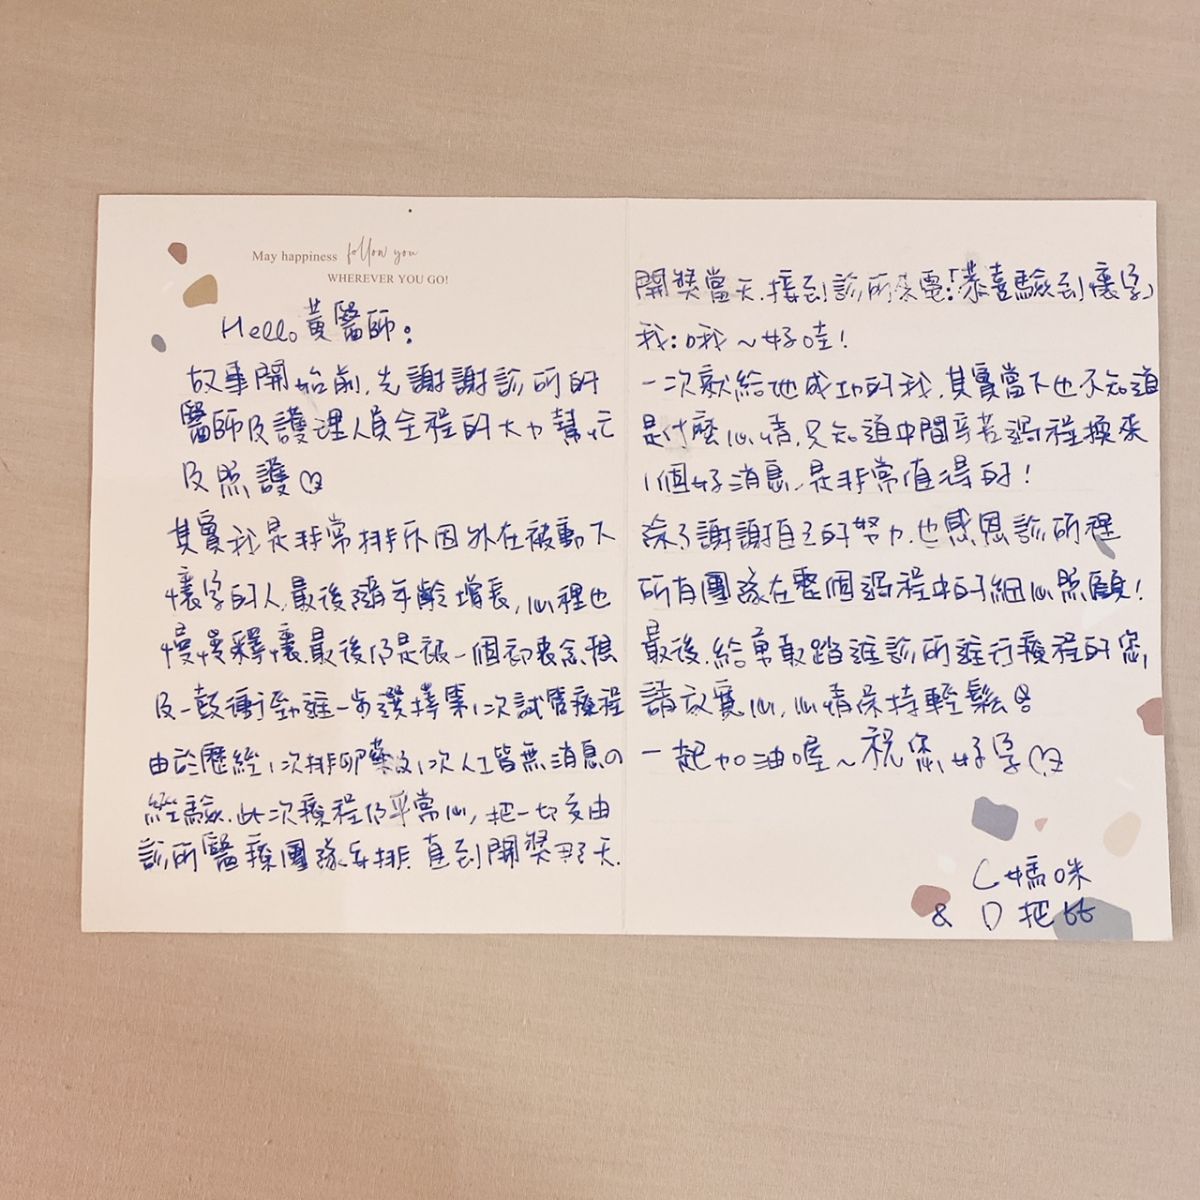 May happiness follow you
WHEREVER YOU GO!
Hello 黃醫師：
故事開始前，先謝謝診所的
醫師及護理人員全程的大力幫忙
及照護
其實我是非常排斥因外在被動下
懷孕的人，最後隨年齡增長，心裡也
慢慢釋懷，最後仍是被一個初衷念想
及一鼓衝勁進一步選擇第1次試管療程
由於歷經1次排卵藥及1次人工皆無消息の
經驗，此次療程仍平常心，把一切交由
診所醫療團隊安排，直到開獎那天．
開獎當天，接到診所來電：「恭喜驗到懷孕」
我：哦～好哇！
一次就給他成功的我，其實當下也不知道
是什麼心情，只知道中間辛苦過程換來
1個好消息，是非常值得的！
除了謝謝自己的努力，也感恩診所裡
所有團隊在整個過程中的細心照顧！
最後，給勇敢踏進診所進行療程的您，
請放寬心，心情保持輕鬆
一起加油喔～祝您 好孕
C媽咪
& D把拔